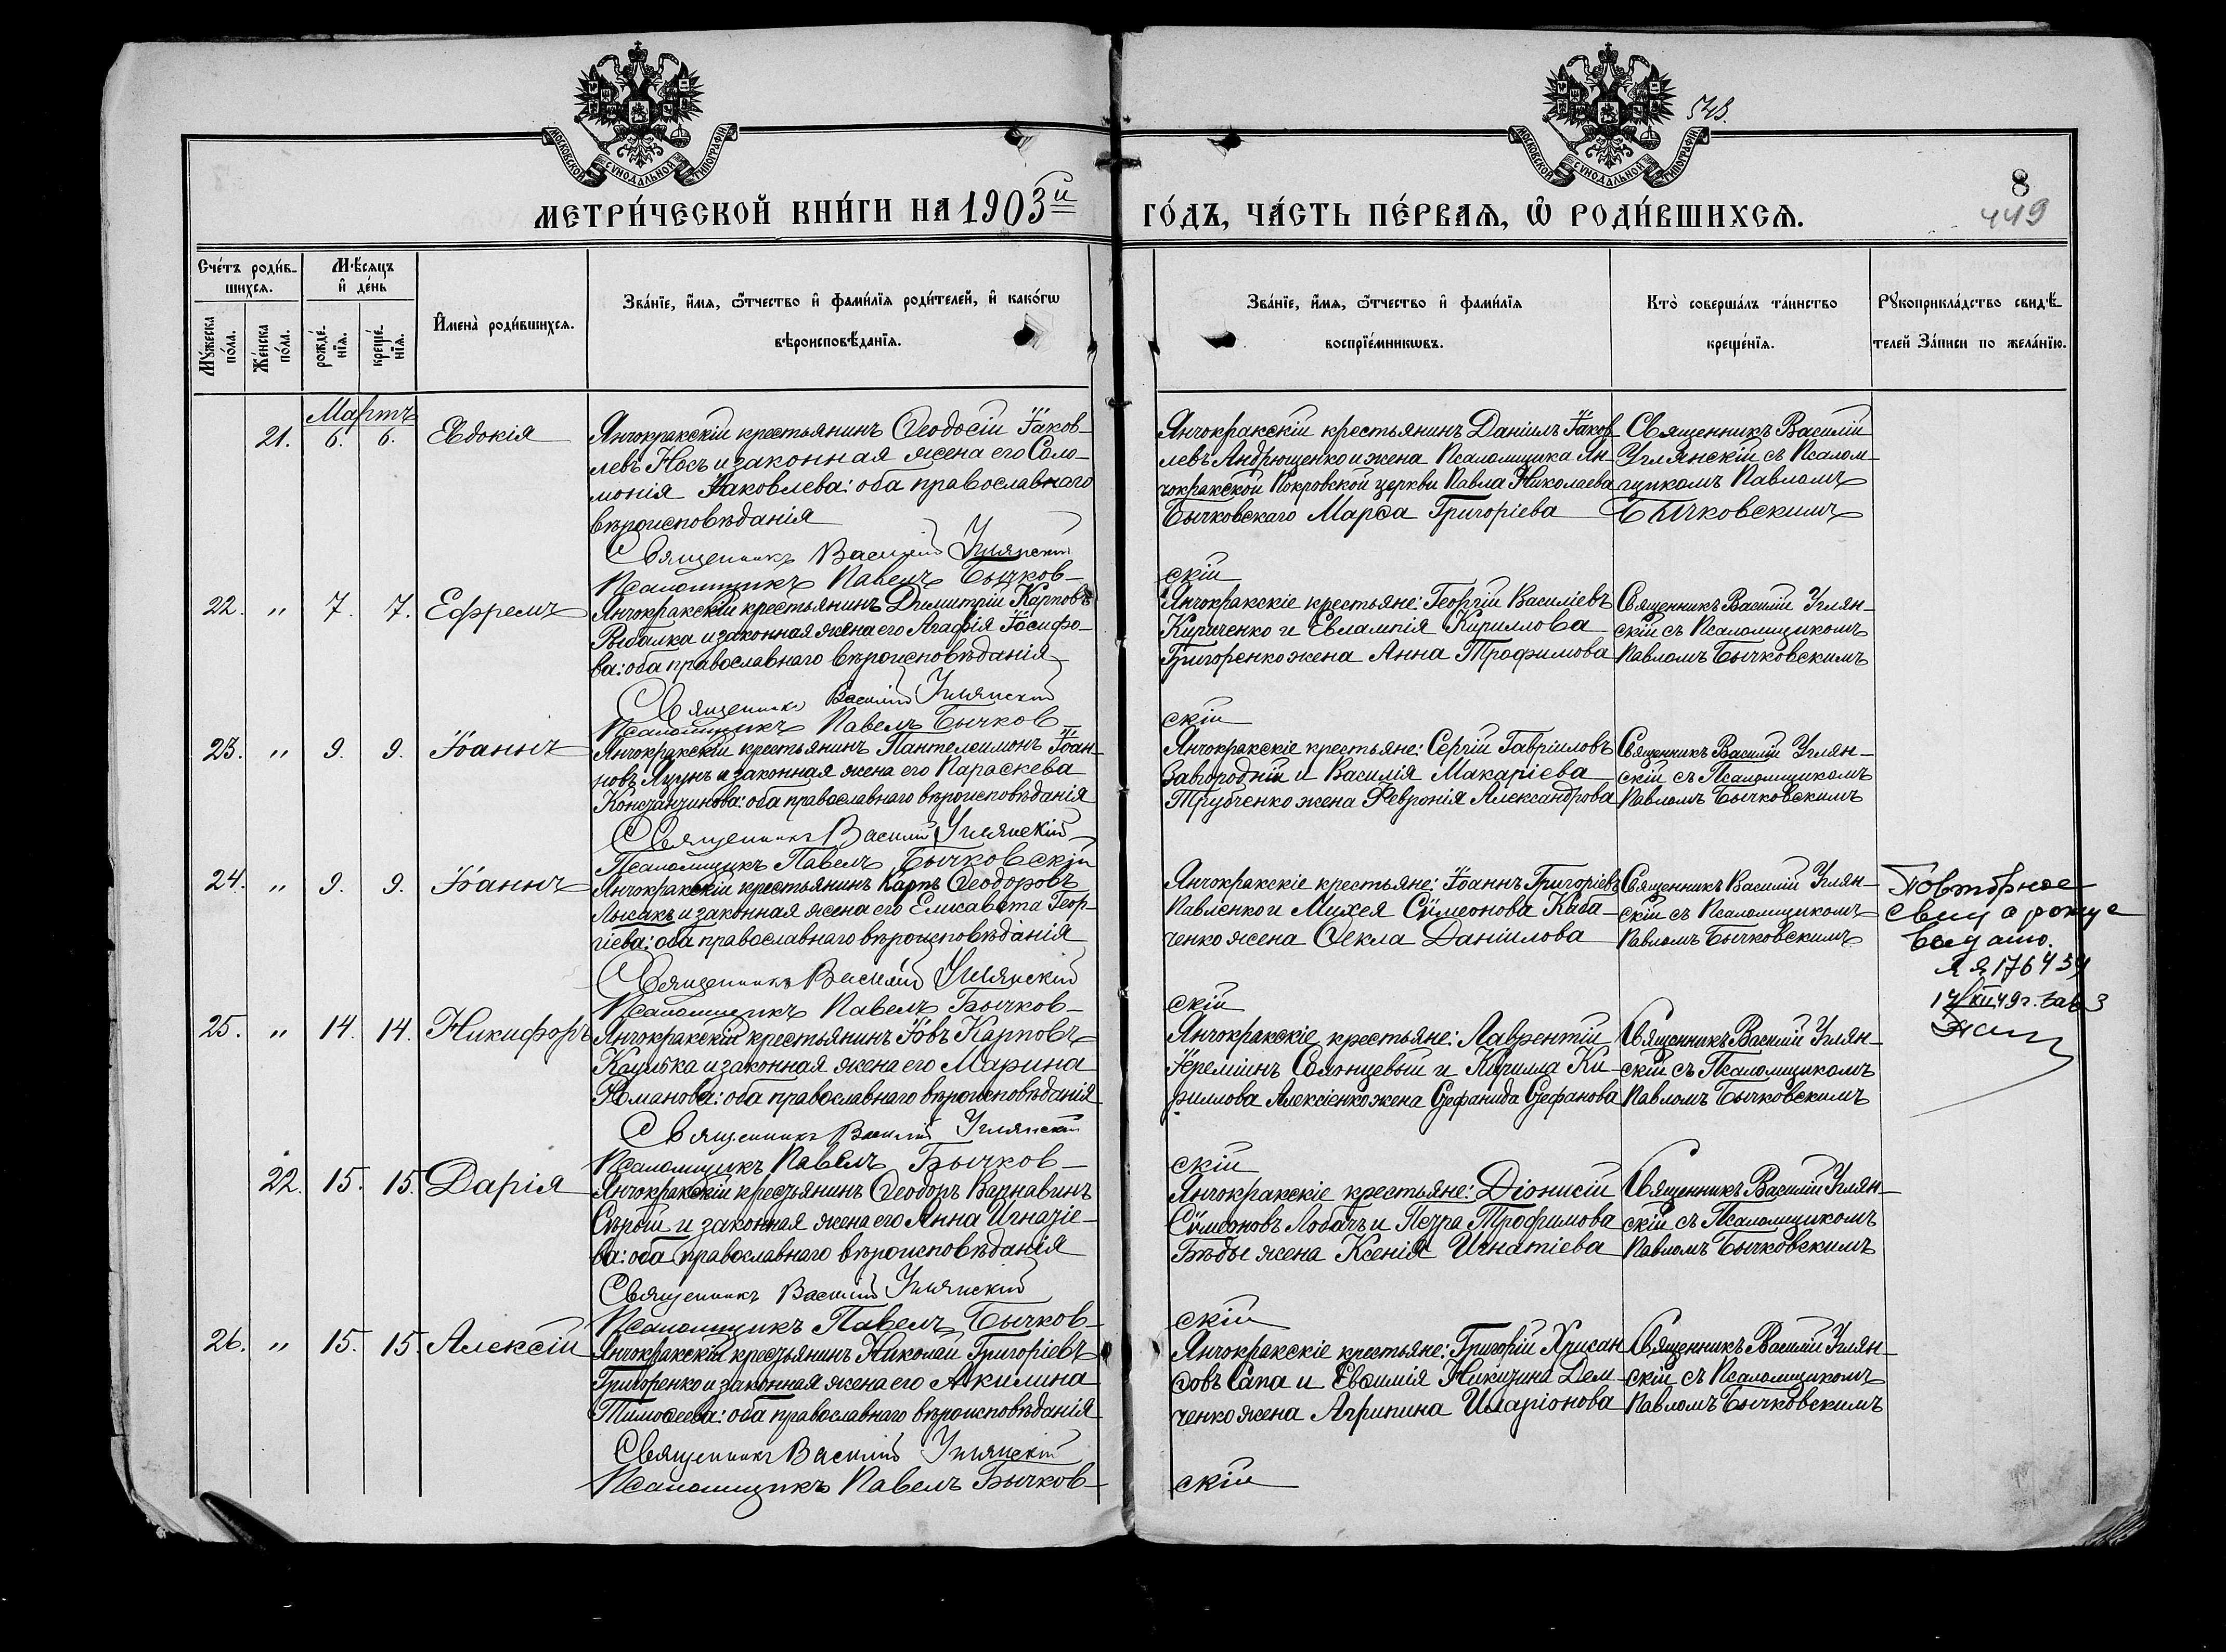 МОСКОВСКОЙ СѴНОДАЛЬНОЙ ТИПОГРАФІИ
МОСКОВСКОЙ СѴНОДАЛЬНОЙ ТИПОГРАФІИ
543.
8
449
МЕТРИ́ЧЕСКОЙ КНИ́ГИ НА 1903й
ГО́ДЪ, ЧА́СТЬ ПЕ́РВАѦ, Ѡ҆ РОДИ́ВШИХСѦ.
Сче́тъ роди́в-
шихсѧ.
Мꙋжеска по́ла.
Же́нска по́ла.
Мѣ́сѧцъ
и҆ де́нь
рожде́-
нїѧ.
креще́-
нїѧ.
И҆мена̀ роди́вшихсѧ.
Зва́нїе, и҆́мѧ, ѻ҆́тчество и҆ фами́лїѧ роди́телей, и҆ како́гѡ
вѣроисповѣ́данїѧ.
Зва́нїе, и҆́мѧ, ѻ҆́тчество и҆ фами́лїѧ
воспрїе́мникѡвъ.
Кто̀ соверша́лъ та́инство
креще́нїѧ.
Рꙋкоприкла́дство свидѣ́-
телей За́писи по жела́нїю.
Мартъ
21. 6. 6. Евдокія
Янчокракскій крестьянинъ Ѳеодосій Іаков-
левъ Носъ и законная жена его Соло-
монія Іаковлева: оба православнаго
вѣроисповѣданія
Священникъ Василій Углянскій
Псаломщикъ Павелъ Бычков-
скій
Янчокракскій крестьянинъ Даніилъ Іаков-
левъ Андрющенко и жена Псаломщика Ян-
чокракской Покровской церкви Павла Николаева
Бычковскаго Марѳа Григоріева
Священникъ Василій
Углянскій съ Псалом-
щикомъ Павломъ
Бычковскимъ
22. " 7. 7. Ефремъ
Янчокракскій крестьянинъ Димитрій Карповъ
Рыбалка и законная жена его Агафія Іосифо-
ва: оба православнаго вѣроисповѣданія
Священникъ Василій Углянскій
Псаломщикъ Павелъ Бычков-
скій
Янчокракскіе крестьяне: Георгій Василіевъ
Кириченко и Евлампія Кириллова
Григоренко жена Анна Трофимова
Священникъ Василій Углян-
скій съ Псаломщикомъ
Павломъ Бычковскимъ
23. " 9. 9. Іоаннъ
Янчокракскій крестьянинъ Пантелеимонъ Іоан-
новъ и законная жена его Параскева
Константинова: оба православнаго вѣроисповѣданія
Священникъ Василій Углянскій
Псаломщикъ Павелъ Бычковскій
Янчокракскіе крестьяне: Сергій Гавріиловъ
Завгородній и Василія Макаріева
Трубченко жена Февронія Александрова
Священникъ Василій Углян-
скій съ Псаломщикомъ
Павломъ Бычковскимъ
24. " 9. 9. Іоаннъ
Янчокракскій крестьянинъ Карпъ Ѳеодоровъ
Лысакъ и законная жена его Елисавета Геор-
гіева: оба православнаго вѣроисповѣданія
Священникъ Василій Углянскій
Псаломщикъ Павелъ Бычков-
скій
Янчокракскіе крестьяне: Іоаннъ Григоріевъ
Павленко и Михея Сѵмеонова Каба-
ченко жена Ѳекла Даніилова
Священникъ Василій Углян-
скій съ Псаломщикомъ
Павломъ Бычковскимъ
Повторное
свид о рожде
выдано.
176454
25. " 14. 14. Никифоръ
Янчокракскій крестьянинъ Іовъ Карповъ
и законная жена его Марина
Романова: оба православнаго вѣроисповѣданія
Священникъ Василій Углянскій
Псаломщикъ Павелъ Бычков-
скій
Янчокракскіе крестьяне: Лаврентій
Іереміинъ Солонцевый и Кирилла Ки-
риллова Алексіенко жена Стефанида Стефанова
Священникъ Василій Углян-
скій съ Псаломщикомъ
Павломъ Бычковскимъ
22. 15. 15. Дарія
Янчокракскій крестьянинъ Ѳеодоръ Варнавинъ
Сѣрый и законная жена его Анна Игнатіе-
ва: оба православнаго вѣроисповѣданія
Священникъ Василій Углянскій
Псаломщикъ Павелъ Бычков-
скій
Янчокракскіе крестьяне: Діонисій
Сѵмеоновъ Лобачъ и Петра Трофимова
Бѣды жена Ксенія Игнатіева
Священникъ Василій Углян-
скій съ Псаломщикомъ
Павломъ Бычковскимъ
26. " 15. 15. Алексій
Янчокракскій крестьянинъ Николай Григоріевъ
Григоренко и законная жена его Акилина
Тимоѳеева: оба православнаго вѣроисповѣданія
Священникъ Василій Углянскій
Псаломщикъ Павелъ Бычков-
скій
Янчокракскіе крестьяне: Григорій Хрисан-
ѳовъ Сапа и Евѳимія Никитина Дем-
ченко жена Агрипина Иларіонова
Священникъ Василій Углян-
скій съ Псаломщикомъ
Павломъ Бычковскимъ